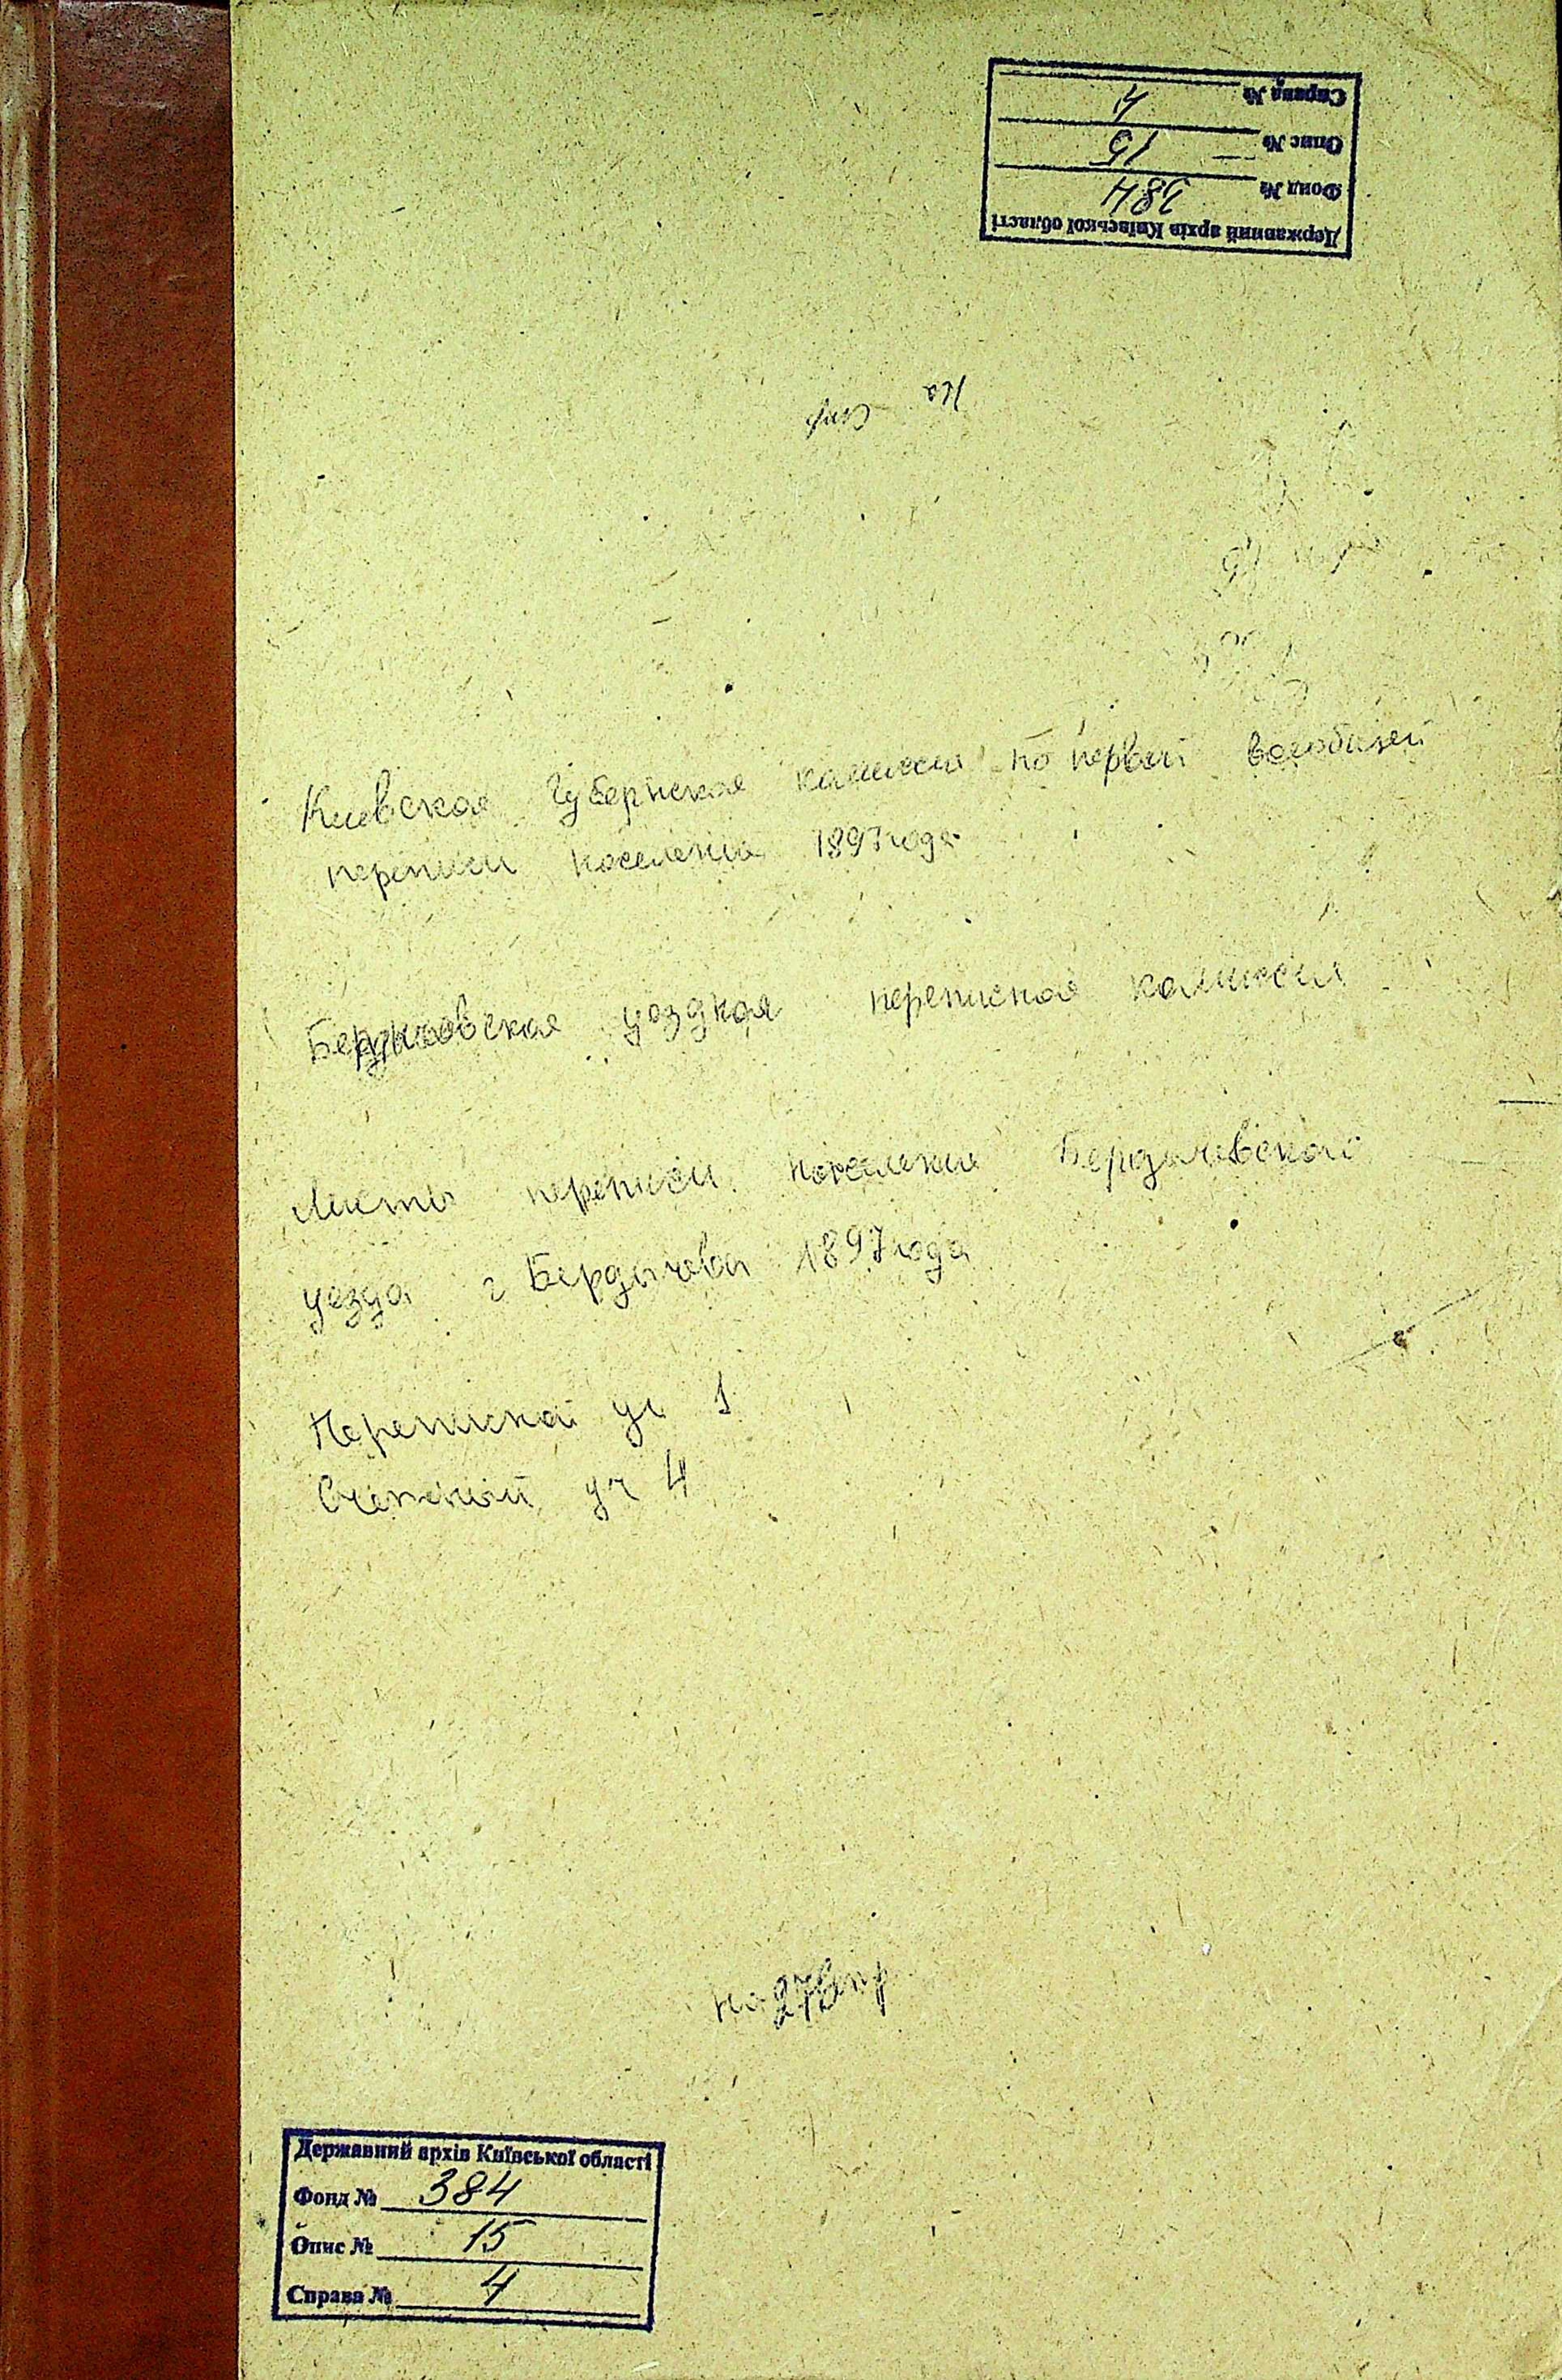 Державний архів Київської області
Фонд № 384
Опис № 15
Справа № 4
На стр
Киевская Губернская комиссия по первой всеобщей
переписи населения 1897 года
Бердичевская уездная переписная комиссия
Листы переписи населения Бердичевского
уезда г Бердичева 1897 года
Переписной уч 1
Счетный уч 4
На
Державний архів Київської області
Фонд № 384
Опис № 15
Справа № 4